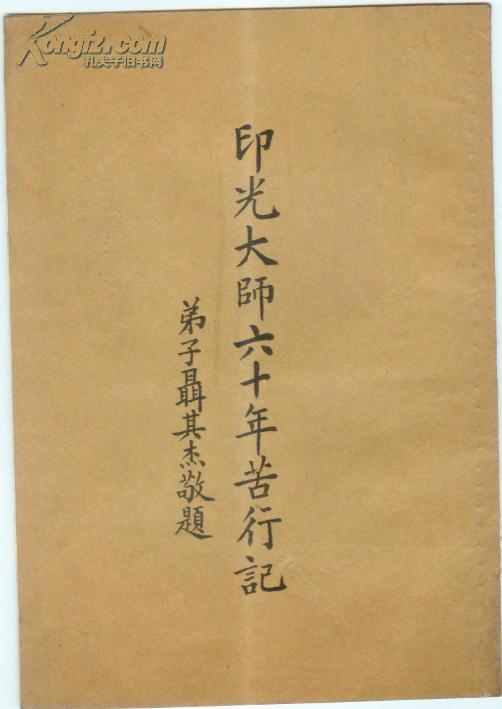 Kongfz.com
孔夫子旧书网
印光大師六十年苦行記
弟子聶其杰敬題